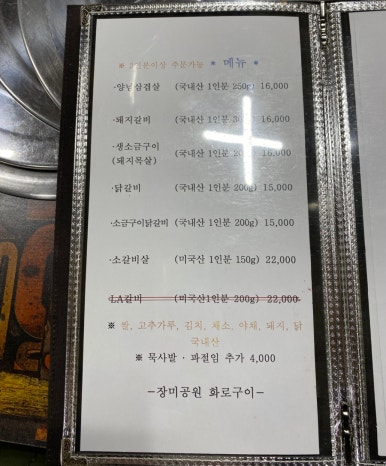 ※ 2인분이상 주문가능 * 메뉴 *
·양념삼겹살 (국내산 1인분 250g) 16,000
·돼지갈비 (국내산 1인분 16,000
·생소금구이 (국내산 1인분 16,000
(돼지목살)
·닭갈비 (국내산 1인분 200g) 15,000
·소금구이닭갈비 (국내산 1인분 200g) 15,000
·소갈비살 (미국산 1인분 150g) 22,000
LA갈비 (미국산1인분 200g) 22,000
※ 쌀, 고추가루, 김치, 채소, 야채, 돼지, 닭
국내산
※ 묵사발 · 과절임 추가 4,000
-장미공원 화로구이-